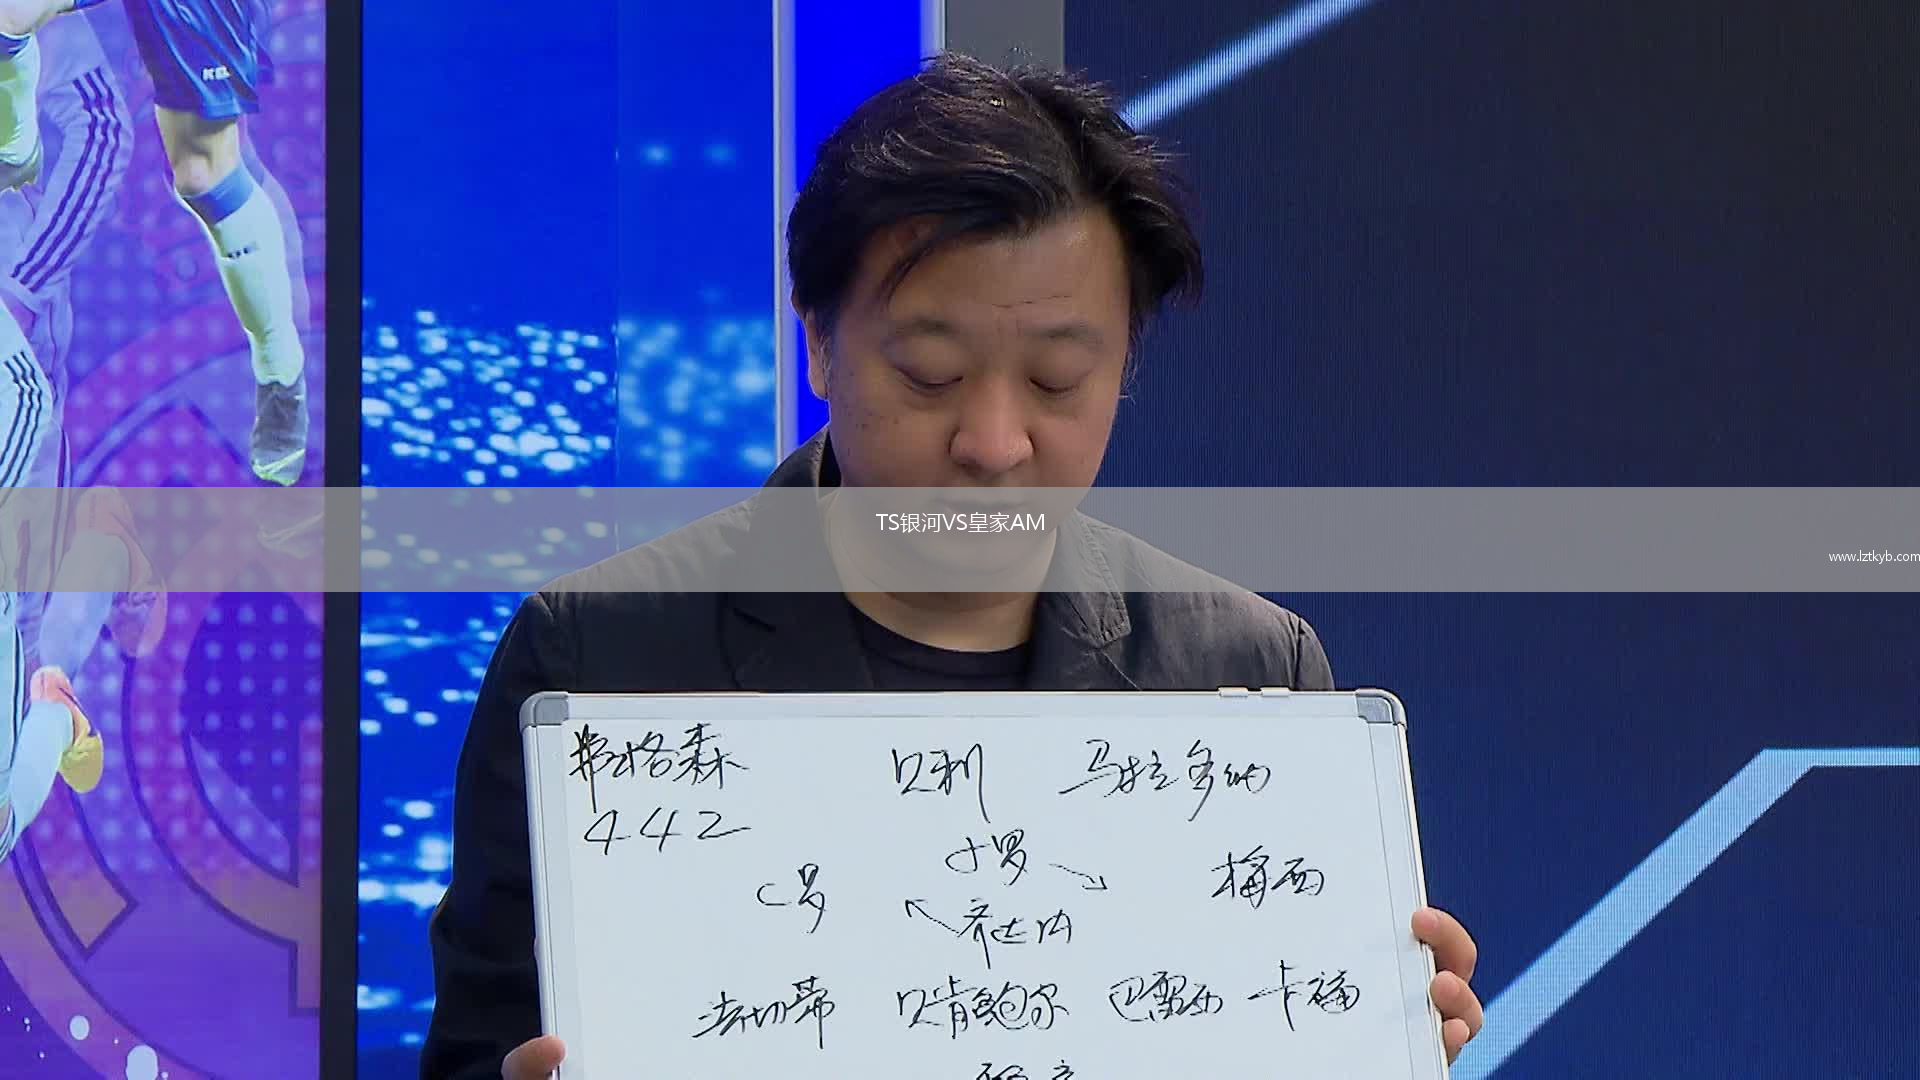 KEL
TS银河VS皇家AM
www.lztkyb.com
弗格森 贝利 马拉多纳
442
小罗
C罗 梅西
齐达内
法切蒂 贝肯鲍尔 巴雷西 卡福